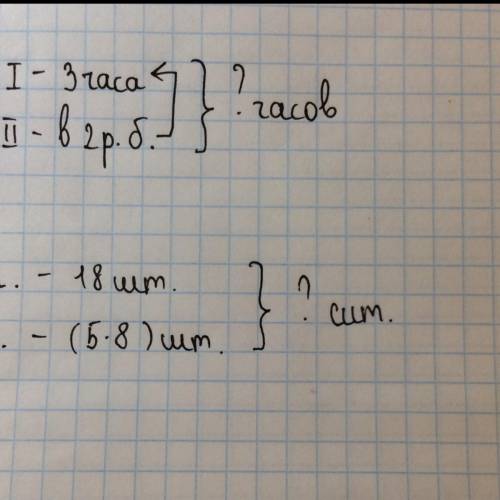 I - 3 часа
II - в 2 р. б.
? часов
. - 18 шт.
. - (5·8) шт.
? шт.